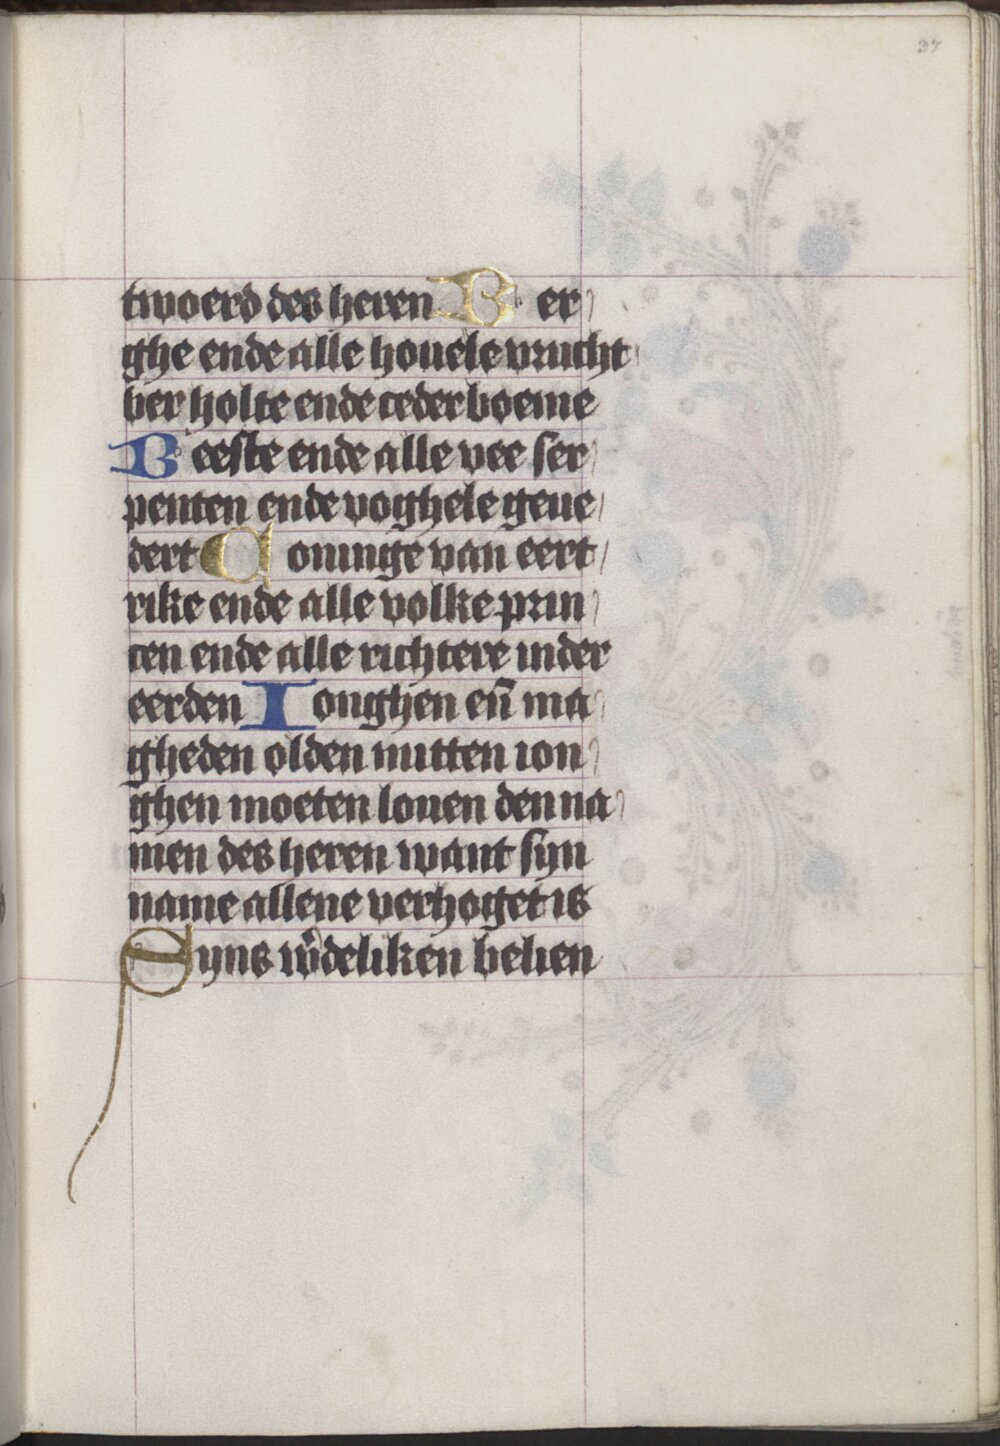 37
twoerd des heren Ber
ghe ende alle houele vrucht
ber holte ende cederboeme
Beeste ende alle vee ser
penten ende voghele geue
dert Coninge van eert
rike ende alle volke prin
cen ende alle richtere inder
eerden Ionghen en̄ ma
gheden olden mitten ion
ghen moeten louen den na
men des heren want syn
name allene verhoget is
Syns w̄deliken belien